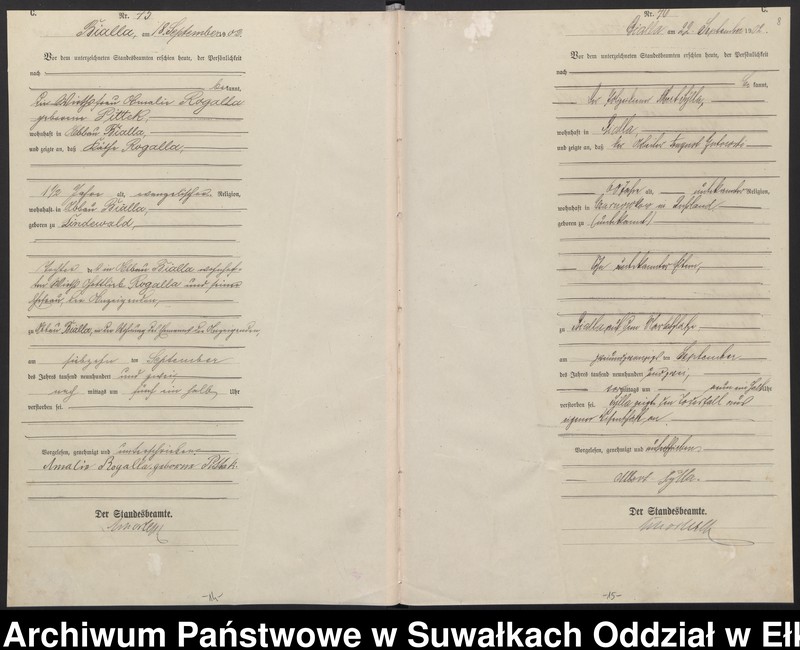 C.
Nr. 73
Bialla, am 18. September 1902.
Vor dem unterzeichneten Standesbeamten erschien heute, der Persönlichkeit
nach
bekannt,
die Wirthsfrau Amalie Rogalla
geborene Pittek,
wohnhaft in Abbau Bialla,
und zeigte an, daß Käthe Rogalla,
1 1/2 Jahre alt, evangelischer Religion,
wohnhaft in Abbau Bialla,
geboren zu Lindewald,
Tochter des in Abbau Bialla wohnhaf-
ten Wirths Gottlieb Rogalla und seiner
Ehefrau, der Anzeigenden,
zu Abbau Bialla, in der Wohnung des Ehemannes der Anzeigenden,
am siebzehn ten September
des Jahres tausend neunhundert und zwei
nach mittags um fünf ein halb Uhr
verstorben sei.
Vorgelesen, genehmigt und unterschrieben
Amalie Rogalla geborene Pittek.
Der Standesbeamte.
-14-
C.
8
Nr. 74
Bialla am 22. September 1902.
Vor dem unterzeichneten Standesbeamten erschien heute, der Persönlichkeit
nach
bekannt,
der Albert Sylla,
wohnhaft in Bialla,
und zeigte an, daß der August
60 Jahre alt, unbekannter Religion,
wohnhaft in in Rußland
geboren zu (unbekannt)
unbekannter Eltern,
zu Bialla auf dem
am ten September
des Jahres tausend neunhundert zwei,
vormittags um neun ein halb Uhr
verstorben sei. Sylla zeigte den Todesfall aus
eigener Wissenschaft an.
Vorgelesen, genehmigt und unterschrieben.
Albert Sylla.
Der Standesbeamte.
-15-
Archiwum Państwowe w Suwałkach Oddział w Ełk